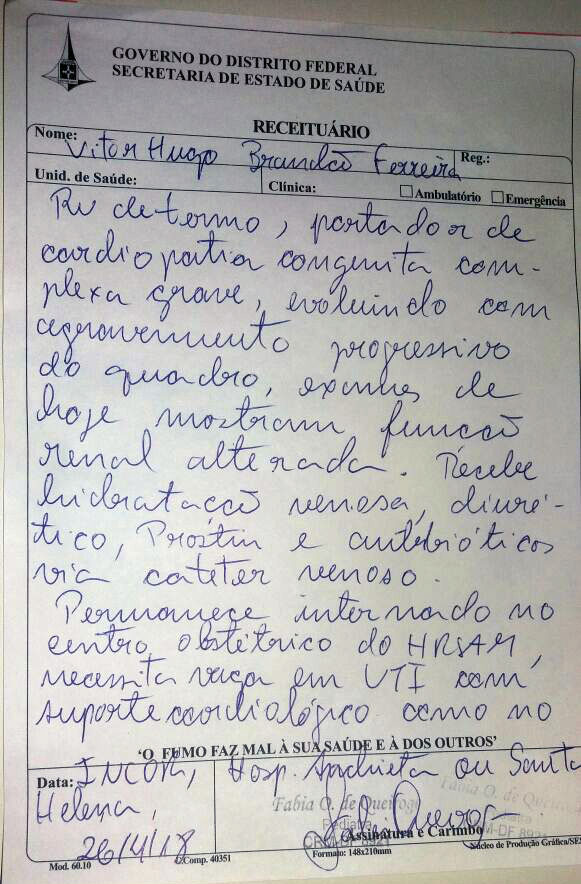 GOVERNO DO DISTRITO FEDERAL
SECRETARIA DE ESTADO DE SAÚDE
RECEITUÁRIO
Nome: Vitor Hugo Brandão Ferreira Reg.:
Unid. de Saúde: Clínica: Ambulatório Emergência
RN de termo, portador de
cardiopatia congenita com-
plexa grave, evoluindo com
agravamento progressivo
do quadro, exames de
hoje mostram função
renal alterada. Recebe
hidratação venosa, diuré-
tico, Prostin e antibióticos
via cateter venoso.
Permanece internado no
centro obstétrico do HRSAM,
necessita vaga em UTI com
suporte cardiológico como no
'O FUMO FAZ MAL À SUA SAÚDE E À DOS OUTROS'
Data: INCOR, Hosp. Anchieta ou Santa
Helena,
Fabia O. de Queiroz
Pediatra
CRM-DF 8921
26/4/18
Assinatura e Carimbo
Mod. 60.10 C.Comp. 40351 Formato: 148x210mm Núcleo de Produção Gráfica/SES